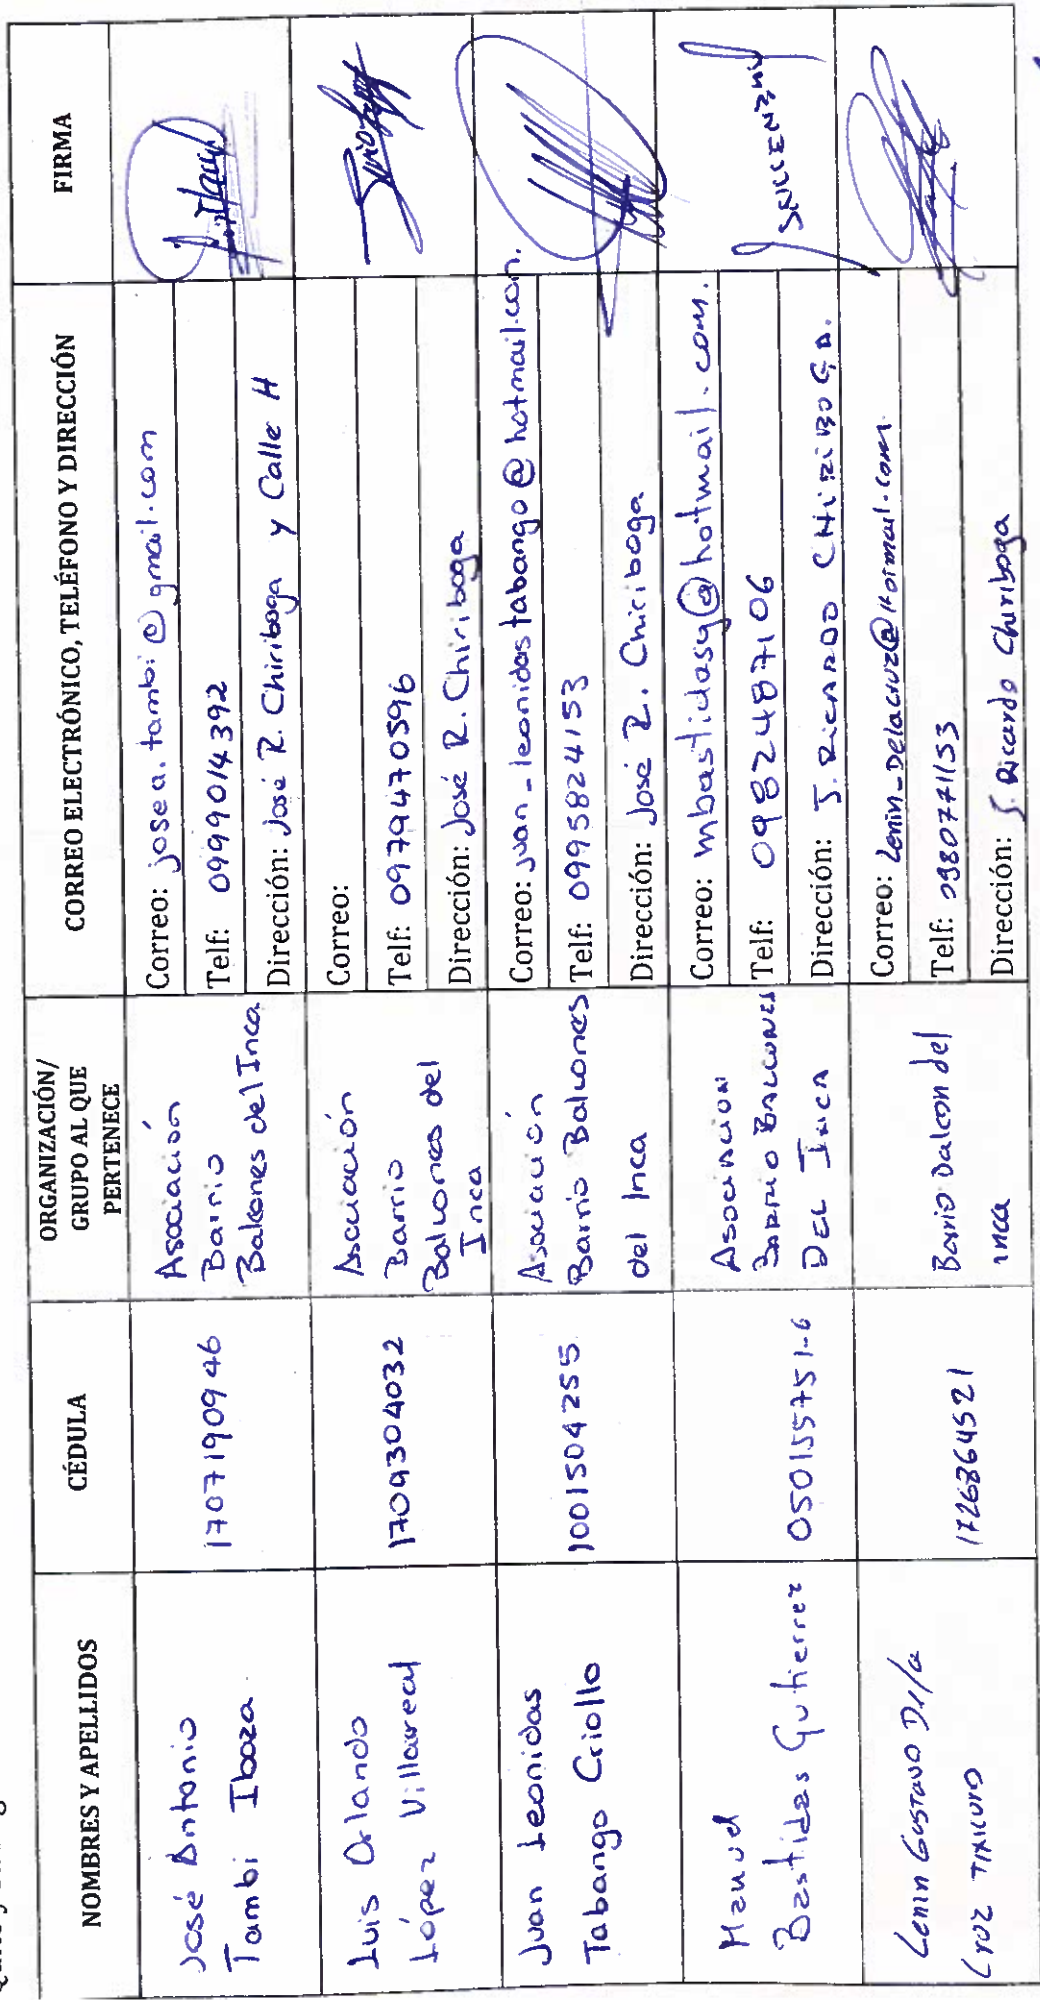 NOMBRES Y APELLIDOS
CÉDULA
ORGANIZACIÓN/
GRUPO AL QUE
PERTENECE
CORREO ELECTRÓNICO, TELÉFONO Y DIRECCIÓN
FIRMA
José Antonio
Tambi Ibaza
1707190946
Asociación
Barrio
Balcones del Inca
Correo: josea.tambi@gmail.com
Telf: 0999014392
Dirección: José R. Chiriboga y Calle H
Luis Orlando
López Villareal
1709304032
Asociación
Barrio
Balcones del
Inca
Correo:
Telf: 0979470596
Dirección: José R. Chiriboga
Juan Leonidas
Tabango Criollo
1001504255
Asociación
Barrio Balcones
del Inca
Correo: juan_leonidastabango@hotmail.com.
Telf: 0995824153
Dirección: José R. Chiriboga
Manuel
Bastidas Gutierrez
050155751-6
Asociacion
Barrio Balcones
DEL Inca
Correo: mbastidasg@hotmail.com.
Telf: 0982487106
Dirección: J. Ricardo CHIRIBOGA.
Lenin Gustavo De la
Cruz
1726864521
Barrio Balcon del
inca
Correo: Lenin_Delacruz@Hotmail.com.
Telf: 0980771153
Dirección: J. Ricardo Chiriboga